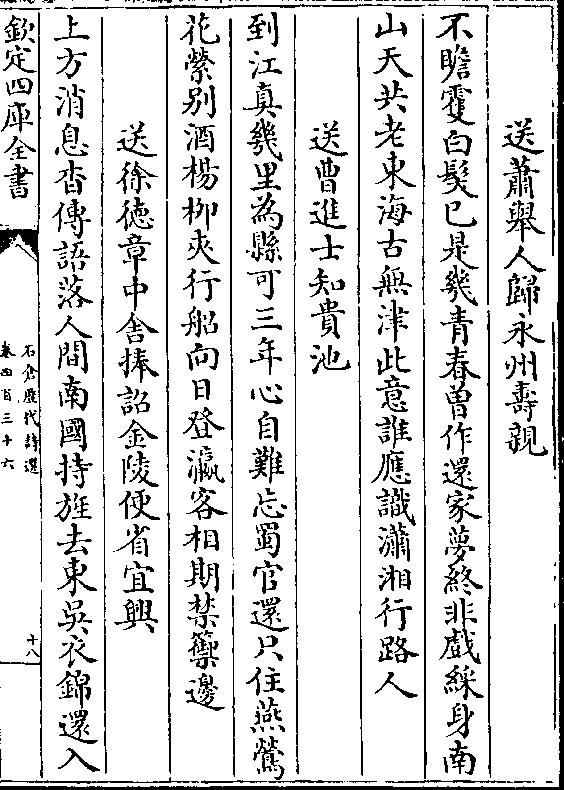 送蕭舉人歸永州壽親
不瞻霍白髮已是幾青春曾作還家夢終非戲綵身南
山天共老東海古無津此意誰應識瀟湘行路人
送曹進士知貴池
到江真幾里為縣可三年心自難忘蜀官還只住燕鶯
花縈别酒楊柳夾行船向日登瀛客相期禁籞邊
送徐徳章中舍捧詔金陵便省宜興
上方消息杳傳語落人間南國持旌去東吳衣錦還入
欽定四庫全書
石倉歷代詩選
卷四百三十六
十八